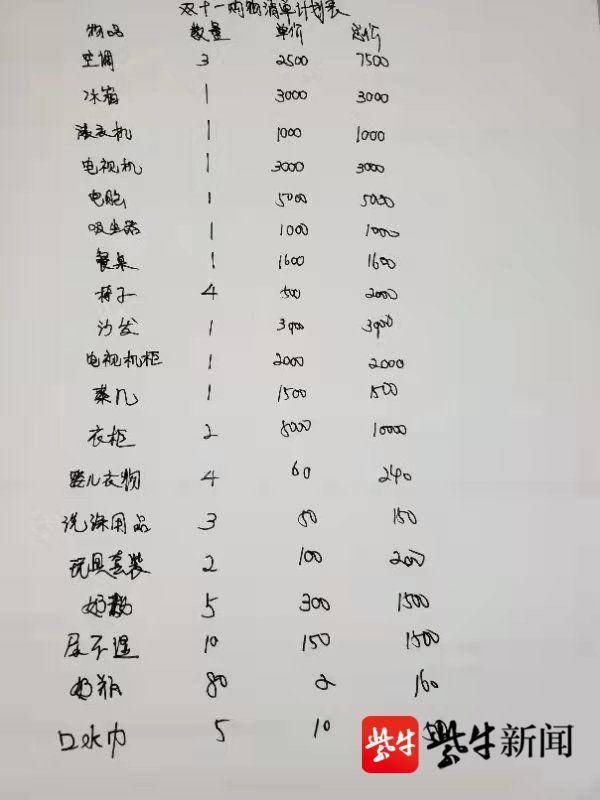 双十一购物清单计划表
物品 数量 单价 总价
空调 3 2500 7500
冰箱 1 3000 3000
滚衣机 1 1000 1000
电视机 1 3000 3000
电脑 1 5000 5000
吸尘器 1 1000 1000
餐桌 1 1600 1600
椅子 4 500 2000
沙发 1 3900 3900
电视机柜 1 2000 2000
茶几 1 1500 1500
衣柜 2 5000 10000
婴儿衣物 4 60 240
洗涤用品 3 50 150
玩具套装 2 100 200
奶粉 5 300 1500
尿不湿 10 150 1500
奶瓶 80 2 160
口水巾 5 10
紫牛 紫牛新闻